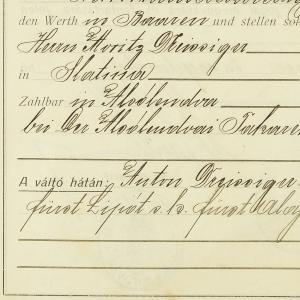 den Werth in Baaren und stellen sol
Herrn Moritz Dreisiger
in Slatina
Zahlbar in Alsólendva
bei der Alsólendvai Takare
A váltó hátán: Anton Dreisiger
fürst Lipót s. k. fürst Aloj